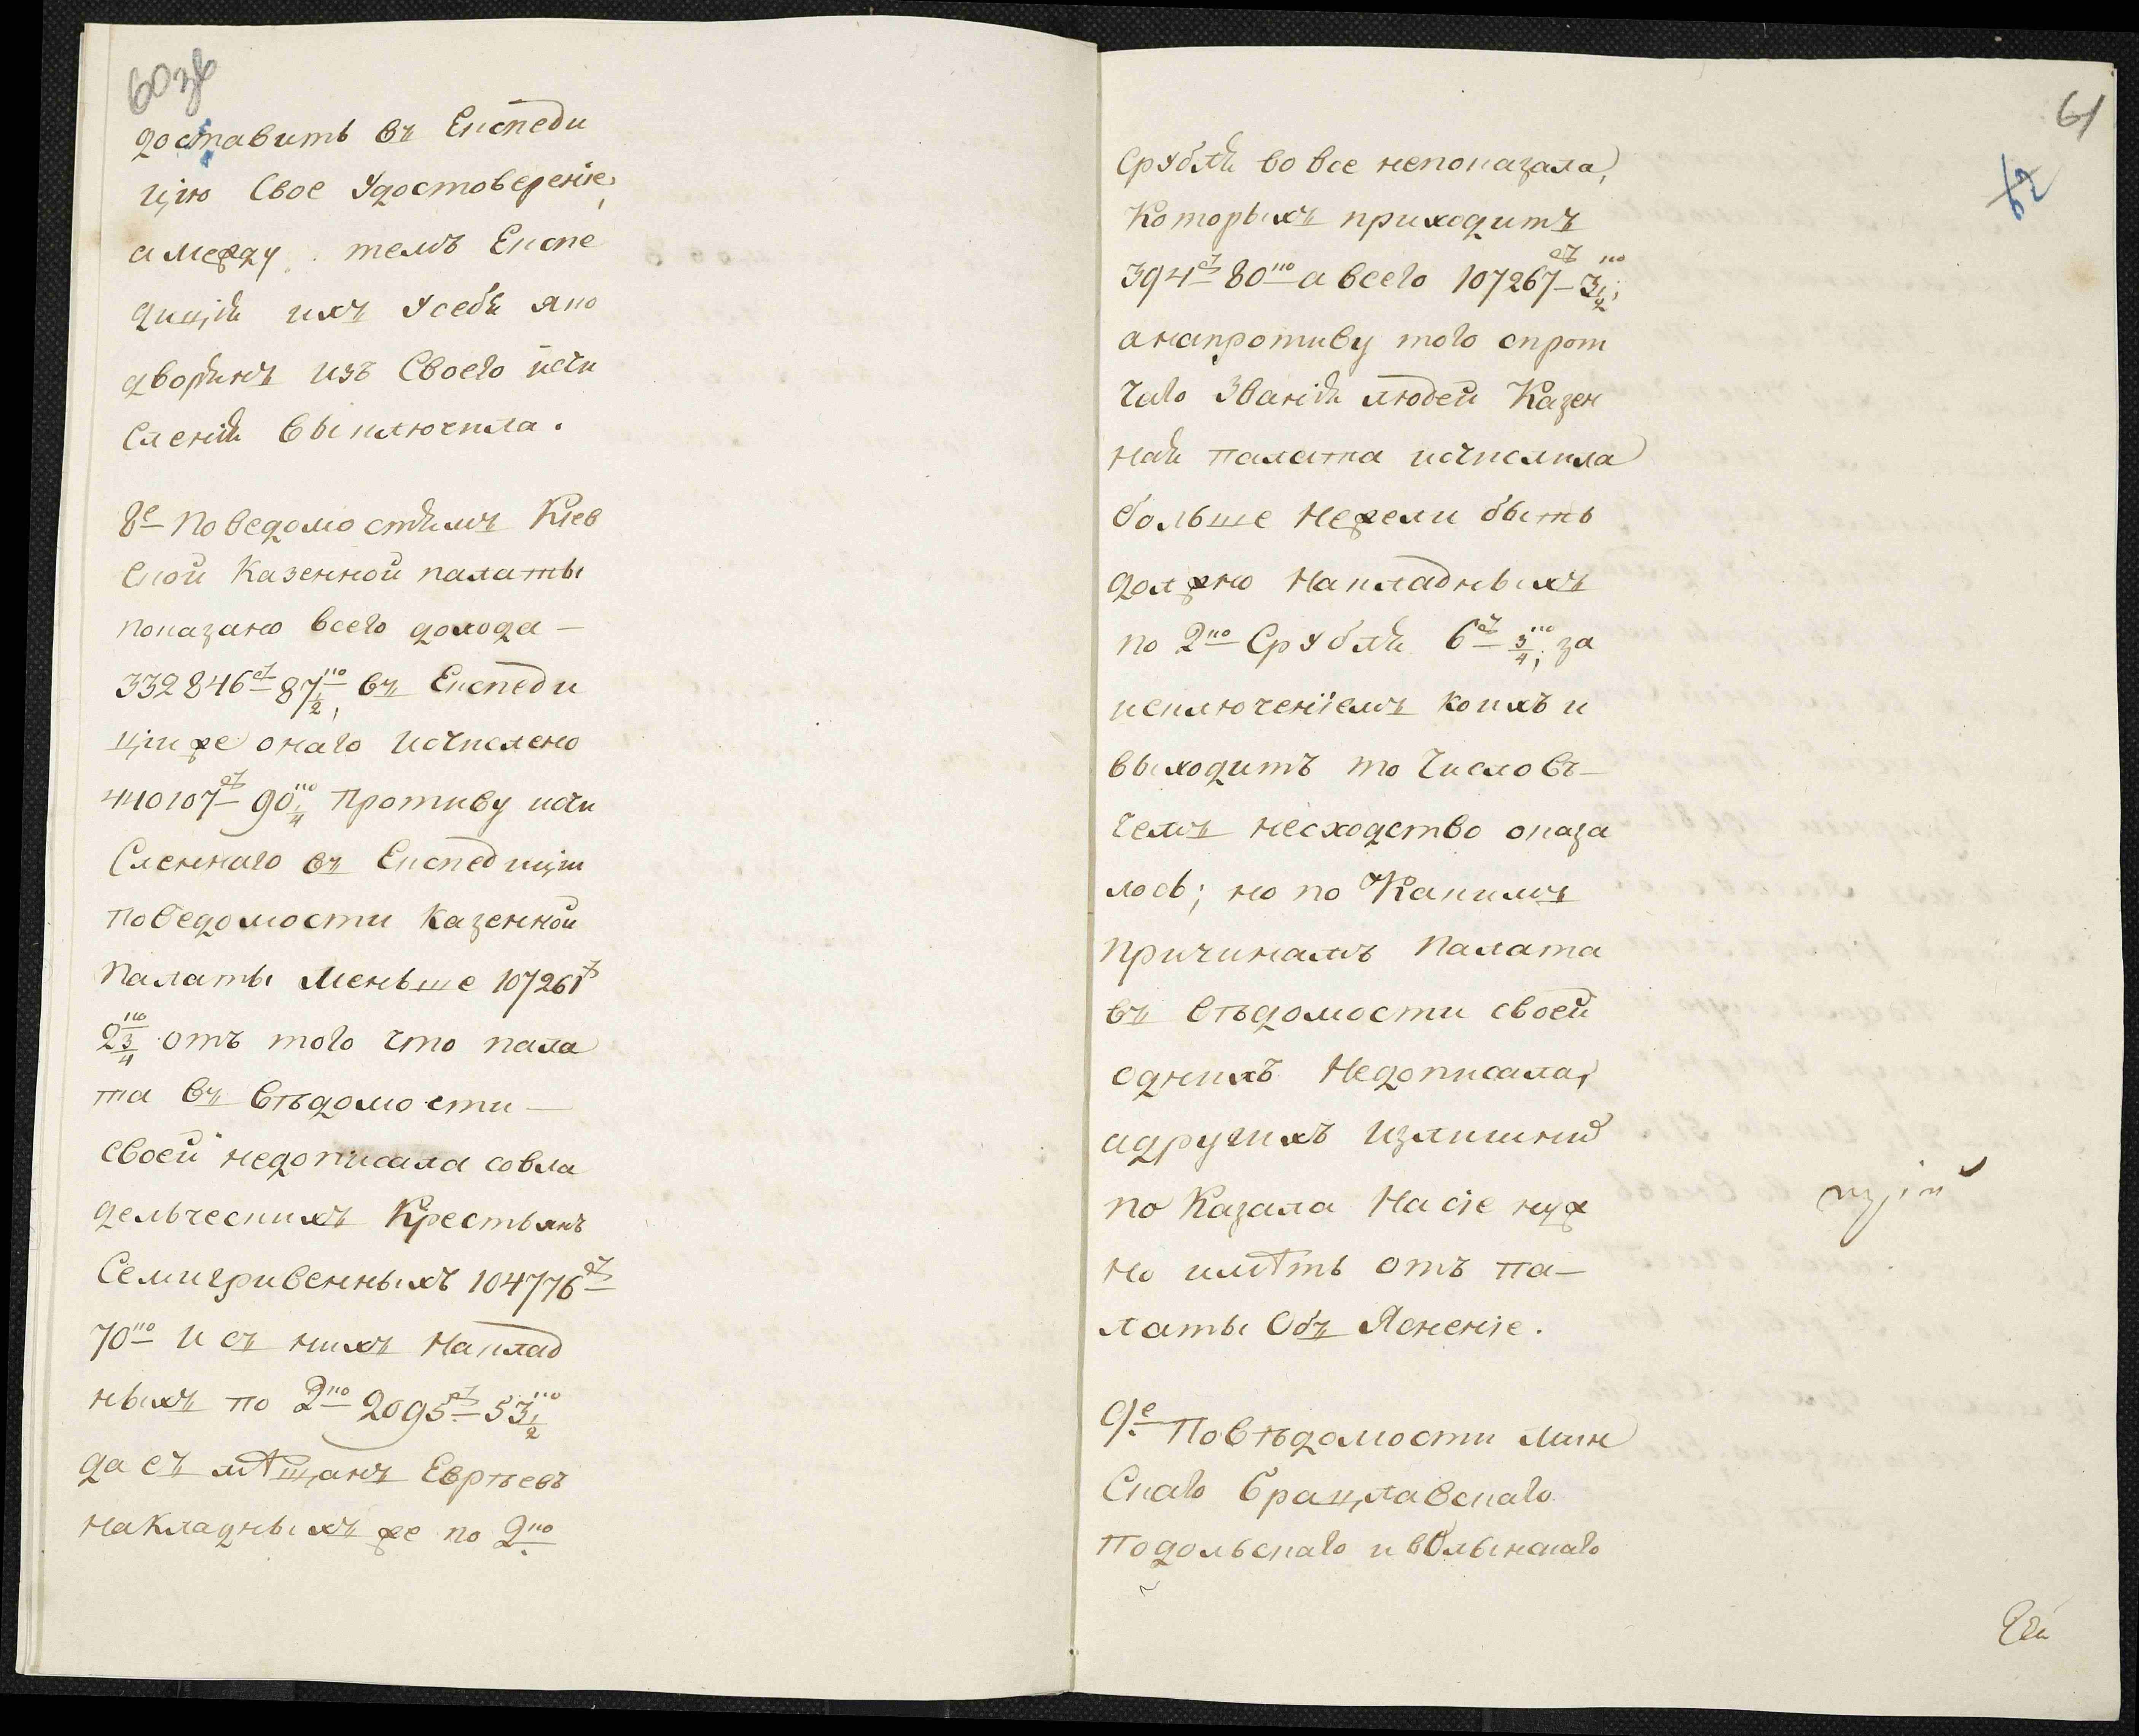 60 зв
доставить въ Експеди
цію Свое Удостоверение,
а между темъ Експе
диція ихъ У себя яко
дворянъ изъ Своего исчи
сления выключила.
8е по ведомостямъ Киев
ской Казенной палаты
показано всего дохода —
332846 ру 87 1/2 ко, въ Експеди
ціи же онаго исчислено
440107 ру 90 1/4 ко противу исчи
сленнаго въ Експедиціи
поведомости казенной
палаты меньше 107261 ру
2 3/4 ко отъ того что пала
та въ вѣдомости —
своей недописала совла
дельческихъ Крестьянъ
Семигривенныхъ 104776 ру
70 ко и съ нихъ Наклад
ныхъ по 2 ко 2095 ру 53 1/2 ко
да съ мѣщанъ Еврѣевъ
накладныхъ же по 2 ко
61
62
Срубля во все непоказала,
Которыхъ приходитъ
394 ру 80 ко а всего 107267 ру 3 1/2 ко;
анапротиву того спрот
чаго Звания людей Казен
ная палата исчислила
больше Нежели быть
должно Накладныхъ
по 2 ко Срубля 6 ру 3/4 ко; за
исключеніемъ коихъ и
выходитъ то Число въ
чемъ несходство оказа
лось; но по Какимъ
причинамъ палата
въ вѣдомости своей
однихъ Недописала,
адругихъ излишнѣ
по Казала На сіе нуж
но имѣть отъ па—
латы Объ Ясненіе.
9е Повѣдомости Мин
Скаго Брацлавскаго
Подольскаго и вОлынскаго